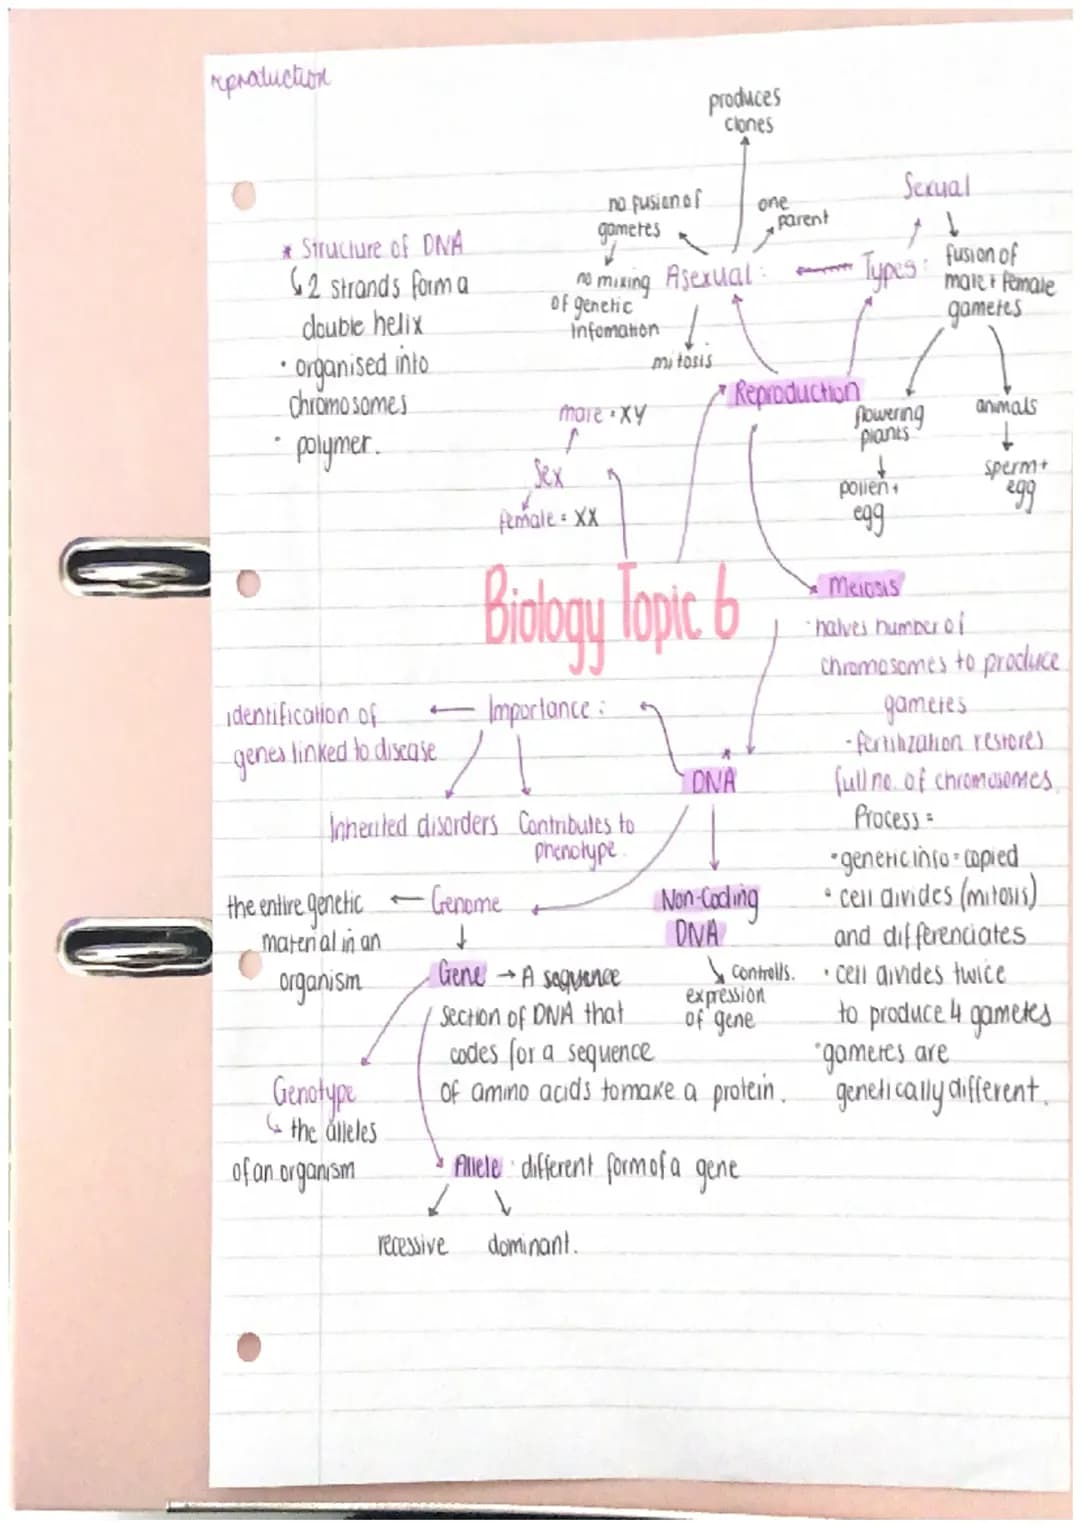 reproduction
produces
clones
Sexual
no fusion of
gametes
one
parent
* Structure of DNA
2 strands form a
double helix
• organised into
chromosomes
• polymer.
no mixing
of genetic
Infomation
Asexual:
Types:
fusion of
male + female
gametes
mitosis
Reproduction
flowering
plants
animals
pollen +
egg
sperm +
egg
male = XY
Sex
female = XX
Biology Topic 6
Meiosis
- halves number of
chromosomes to produce
gametes
- fertilization restores
full no. of chromosomes.
Process =
• genetic info = copied
• cell divides (mitosis)
and differenciates
• cell divides twice
to produce 4 gametes
• gametes are
genetically different.
identification of
genes linked to disease
Importance:
* DNA
Inherited disorders
Contributes to
phenotype.
the entire genetic
material in an
organism
Genome
Non-Coding
DNA
Controlls.
expression
of gene
Gene → A sequence
section of DNA that
codes for a sequence
of amino acids to make a protein.
Genotype
the alleles
of an organism
Allele : different form of a gene
recessive dominant.